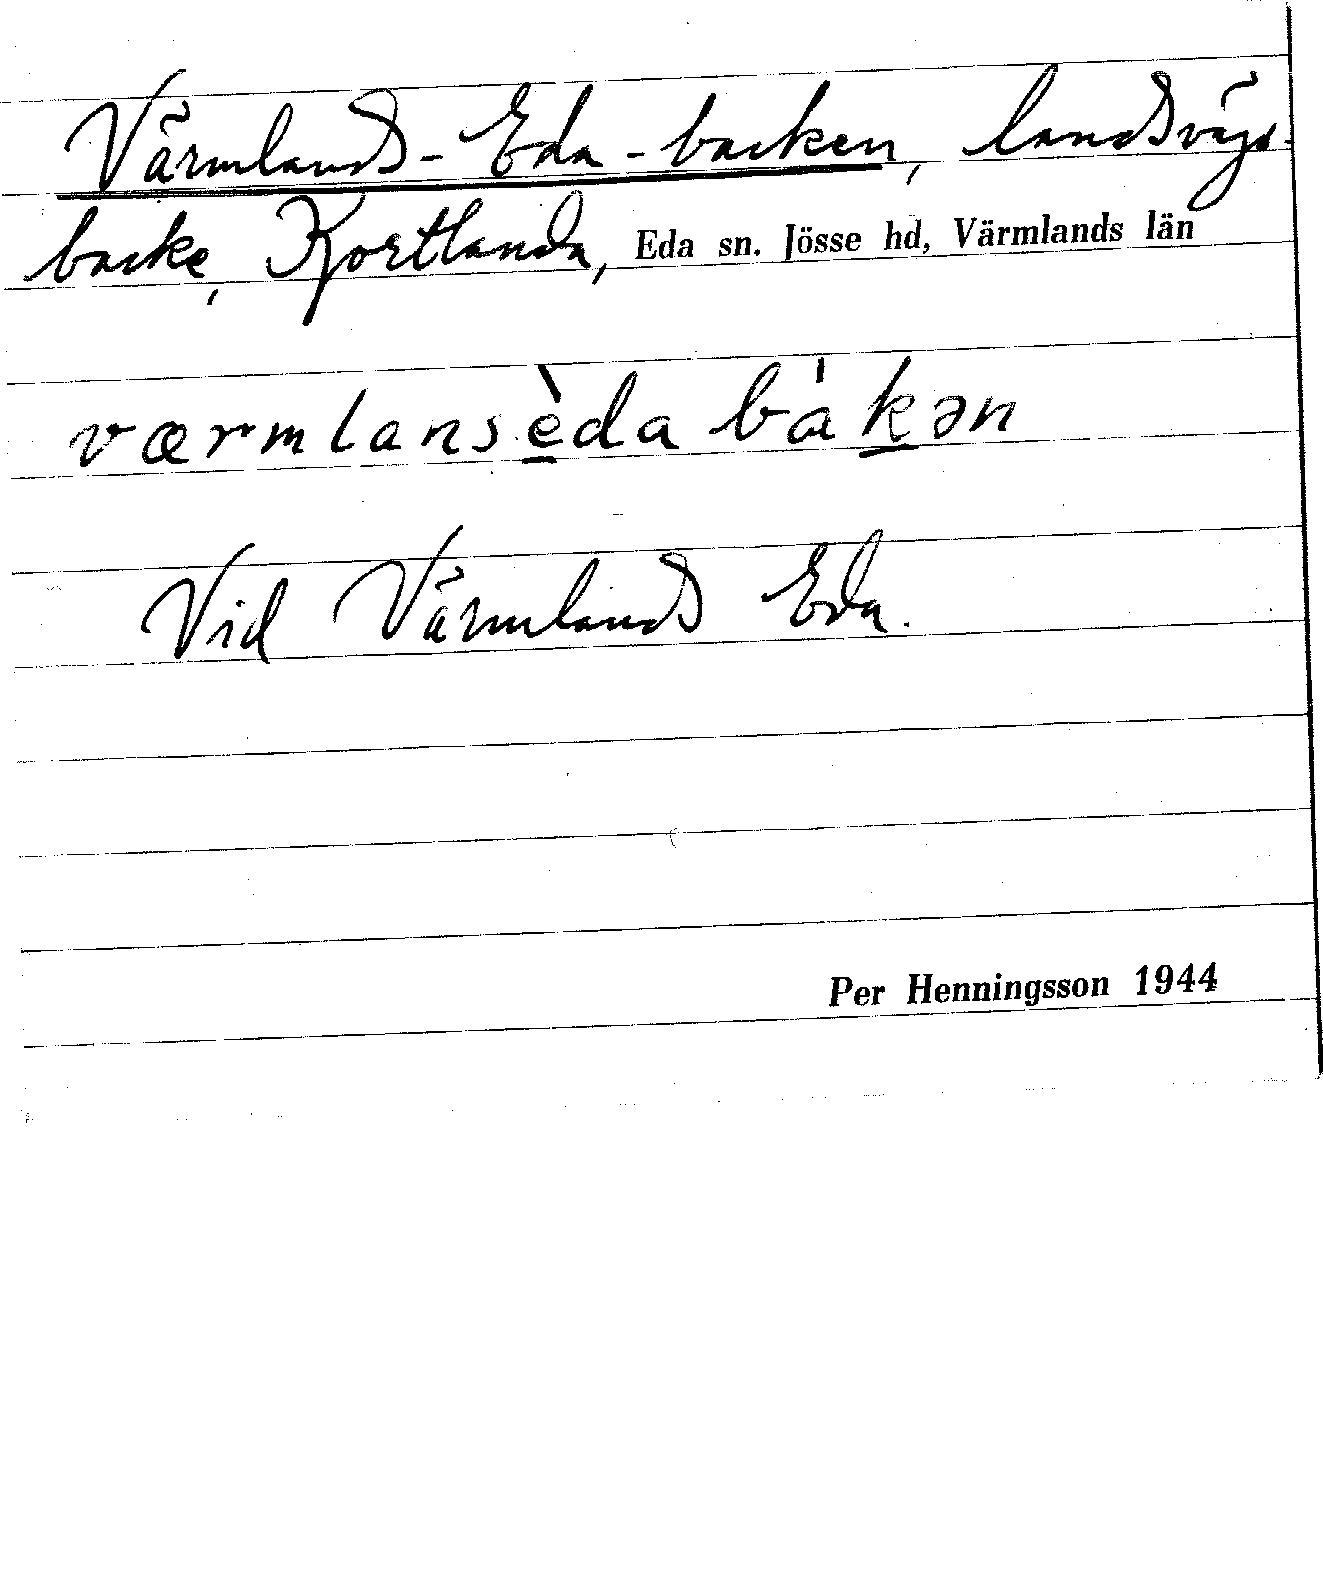 Värmlands-Eda-backen, landsvägs-
backe, Kortlanda, Eda sn. Jösse hd, Värmlands län
værmlansèda bàkən
Vid Värmlands Eda.
Per Henningsson 1944